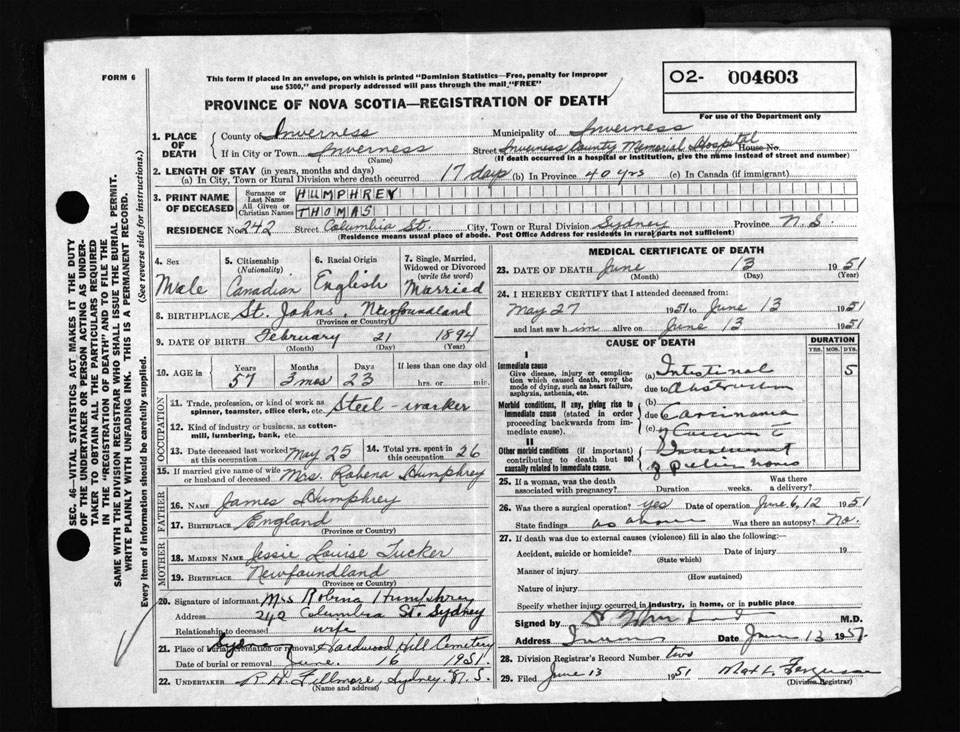 FORM 6
This form if placed in an envelope, on which is printed "Dominion Statistics—Free, penalty for improper
use $300," and properly addressed will pass through the mail "FREE"
PROVINCE OF NOVA SCOTIA—REGISTRATION OF DEATH
02- 004603
For use of the Department only
SEC. 46—VITAL STATISTICS ACT MAKES IT THE DUTY
OF THE UNDERTAKER OR PERSON ACTING AS UNDER-
TAKER TO OBTAIN ALL THE PARTICULARS REQUIRED
IN THE "REGISTRATION OF DEATH" AND TO FILE THE
SAME WITH THE DIVISION REGISTRAR WHO SHALL ISSUE THE BURIAL PERMIT.
WRITE PLAINLY WITH UNFADING INK. THIS IS A PERMANENT RECORD.
Every item of information should be carefully supplied. (See reverse side for instructions.)
1. PLACE OF DEATH
County of Inverness Municipality of Inverness
If in City or Town Inverness Street Inverness County Memorial Hospital House No.
(Name) (If death occurred in a hospital or institution, give the name instead of street and number)
2. LENGTH OF STAY (in years, months and days)
(a) In City, Town or Rural Division where death occurred 17 days (b) In Province 40 yrs (c) In Canada (if immigrant)
3. PRINT NAME OF DECEASED
Surname or Last Name HUMPHREY
All Given or Christian Names THOMAS
RESIDENCE No. 242 Street Columbia St. City, Town or Rural Division Sydney Province N.S.
(Residence means usual place of abode. Post Office Address for residents in rural parts not sufficient)
4. Sex Male
5. Citizenship (Nationality) Canadian
6. Racial Origin English
7. Single, Married, Widowed or Divorced (write the word) Married
8. BIRTHPLACE St. Johns, Newfoundland
(Province or Country)
9. DATE OF BIRTH February 21 1894
(Month) (Day) (Year)
10. AGE in Years Months Days If less than one day old
57 3 mos 23 hrs. or min.
OCCUPATION
11. Trade, profession, or kind of work as
spinner, teamster, office clerk, etc. Steel-worker
12. Kind of industry or business, as cotton-
mill, lumbering, bank, etc.
13. Date deceased last worked at this occupation May 25
14. Total yrs. spent in this occupation 26
15. If married give name of wife or husband of deceased Mrs. Rabena Humphrey
FATHER
16. NAME James Humphrey
17. BIRTHPLACE England
(Province or Country)
MOTHER
18. MAIDEN NAME Jessie Louise Tucker
19. BIRTHPLACE Newfoundland
(Province or Country)
20. Signature of informant Mrs Robena Humphrey
Address 242 Columbia St. Sydney
Relationship to deceased wife
21. Place of burial, cremation or removal Hardwood Hill Cemetery
Date of burial or removal June 16 1951.
22. UNDERTAKER R.H. Fillmore, Sydney. N.S.
(Name and address)
MEDICAL CERTIFICATE OF DEATH
23. DATE OF DEATH June 13 1951
(Month) (Day) (Year)
24. I HEREBY CERTIFY that I attended deceased from:
May 27 1951 to June 13 1951
and last saw him alive on June 13 1951
CAUSE OF DEATH
DURATION
YRS. MOS. DYS.
I
Immediate cause
Give disease, injury or complica-
tion which caused death, not the
mode of dying, such as heart failure,
asphyxia, asthenia, etc.
(a) Intestinal 5
due to Obstruction
Morbid conditions, if any, giving rise to
immediate cause (stated in order
proceeding backwards from im-
mediate cause).
(b)
due Carcinoma
(c)
II
Other morbid conditions (if important)
contributing to death but not
causally related to immediate cause.
25. If a woman, was the death
associated with pregnancy? Duration weeks. Was there a delivery?
26. Was there a surgical operation? yes Date of operation June 6, 12 1951
State findings as above Was there an autopsy? No.
27. If death was due to external causes (violence) fill in also the following:
Accident, suicide or homicide? Date of injury 19
(State which)
Manner of injury
(How sustained)
Nature of injury
Specify whether injury occurred in industry, in home, or in public place
Signed by M.D.
Address Date June 13 1951
28. Division Registrar's Record Number two
29. Filed June 13 1951 Max L. Ferguson
(Division Registrar)